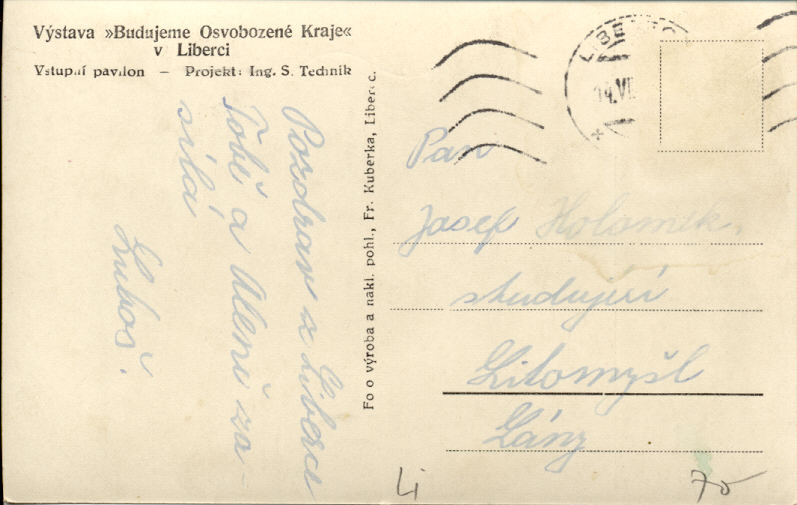 Výstava »Budujeme Osvobozené Kraje«
v Liberci
Vstupní pavilon – Projekt: Ing. S. Technik
Pozdrav z Liberce
Tobě a Aleně za
sílá
Luboš.
Fo o výroba a nakl. pohl., Fr. Kuberka, Liberec.
LIBEREC
14.VII
Pan
Josef Holomek
studující
Litomyšl
Lány
Li
70